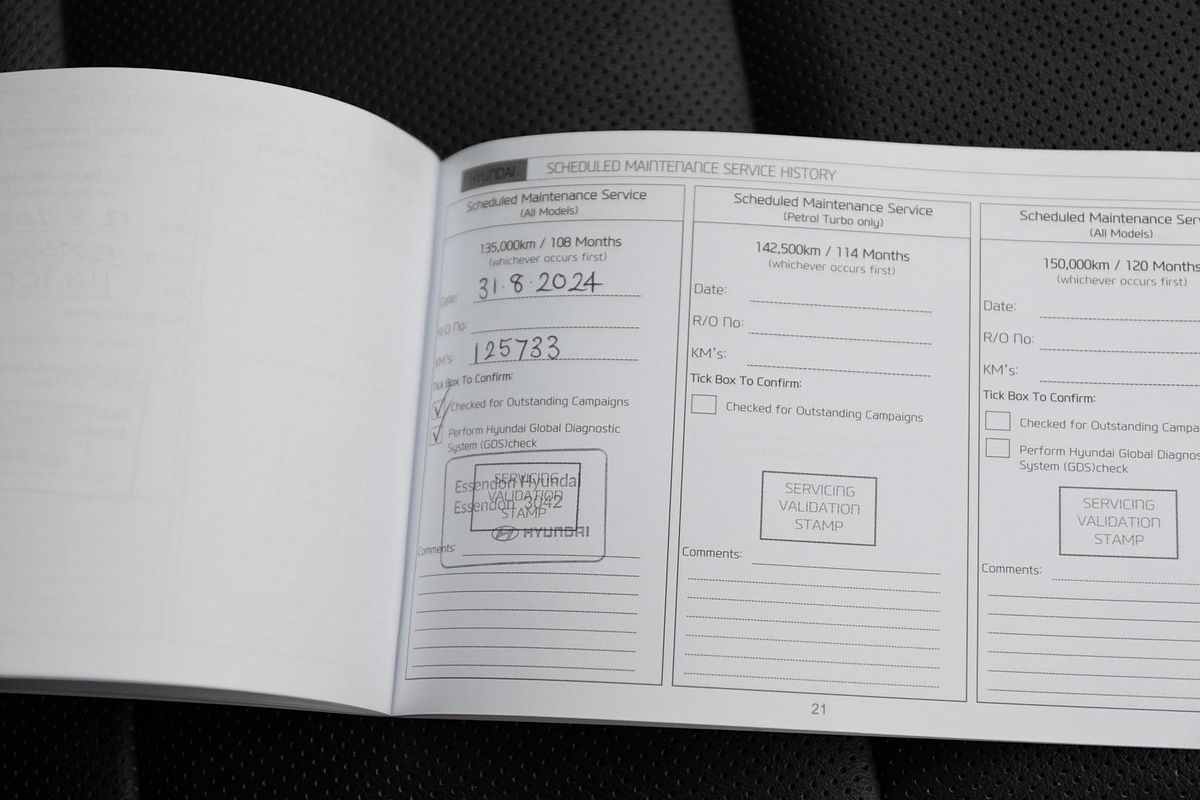 HYUNDAI
SCHEDULED MAINTENANCE SERVICE HISTORY
Scheduled Maintenance Service
(All Models)
135,000km / 108 Months
(whichever occurs first)
Date: 31·8·2024
R/O No:
KM's: 125733
Tick Box To Confirm:
Checked for Outstanding Campaigns
Perform Hyundai Global Diagnostic
System (GDS)check
SERVICING
VALIDATION
STAMP
Essendon Hyundai
Essendon 3042
HYUNDAI
Comments:
Scheduled Maintenance Service
(Petrol Turbo only)
142,500km / 114 Months
(whichever occurs first)
Date:
R/O No:
KM's:
Tick Box To Confirm:
Checked for Outstanding Campaigns
SERVICING
VALIDATION
STAMP
Comments:
Scheduled Maintenance Ser
(All Models)
150,000km / 120 Months
(whichever occurs first)
Date:
R/O No:
KM's:
Tick Box To Confirm:
Checked for Outstanding Campa
Perform Hyundai Global Diagnos
System (GDS)check
SERVICING
VALIDATION
STAMP
Comments:
21